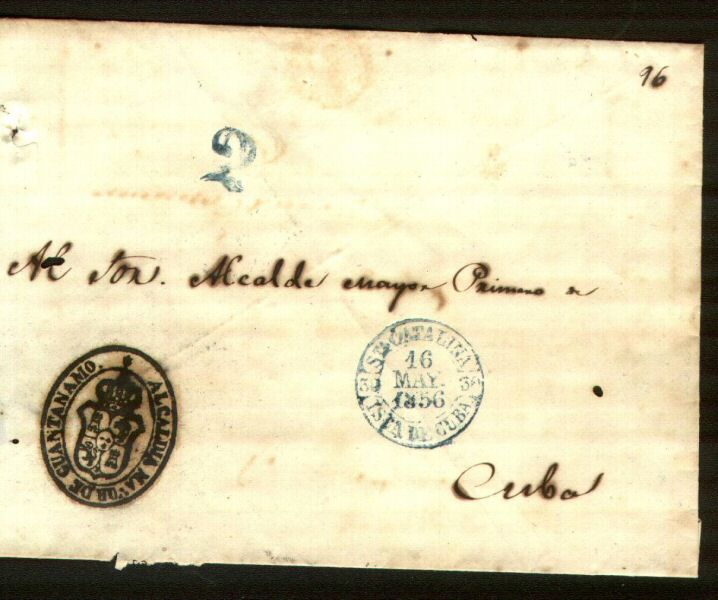 96
2
Al Sor. Alcalde mayor Primero de
ALCALDIA MAYOR DE GUANTANAMO.
STA CATALINA
16
MAY.
1856
ISLA DE CUBA
Cuba